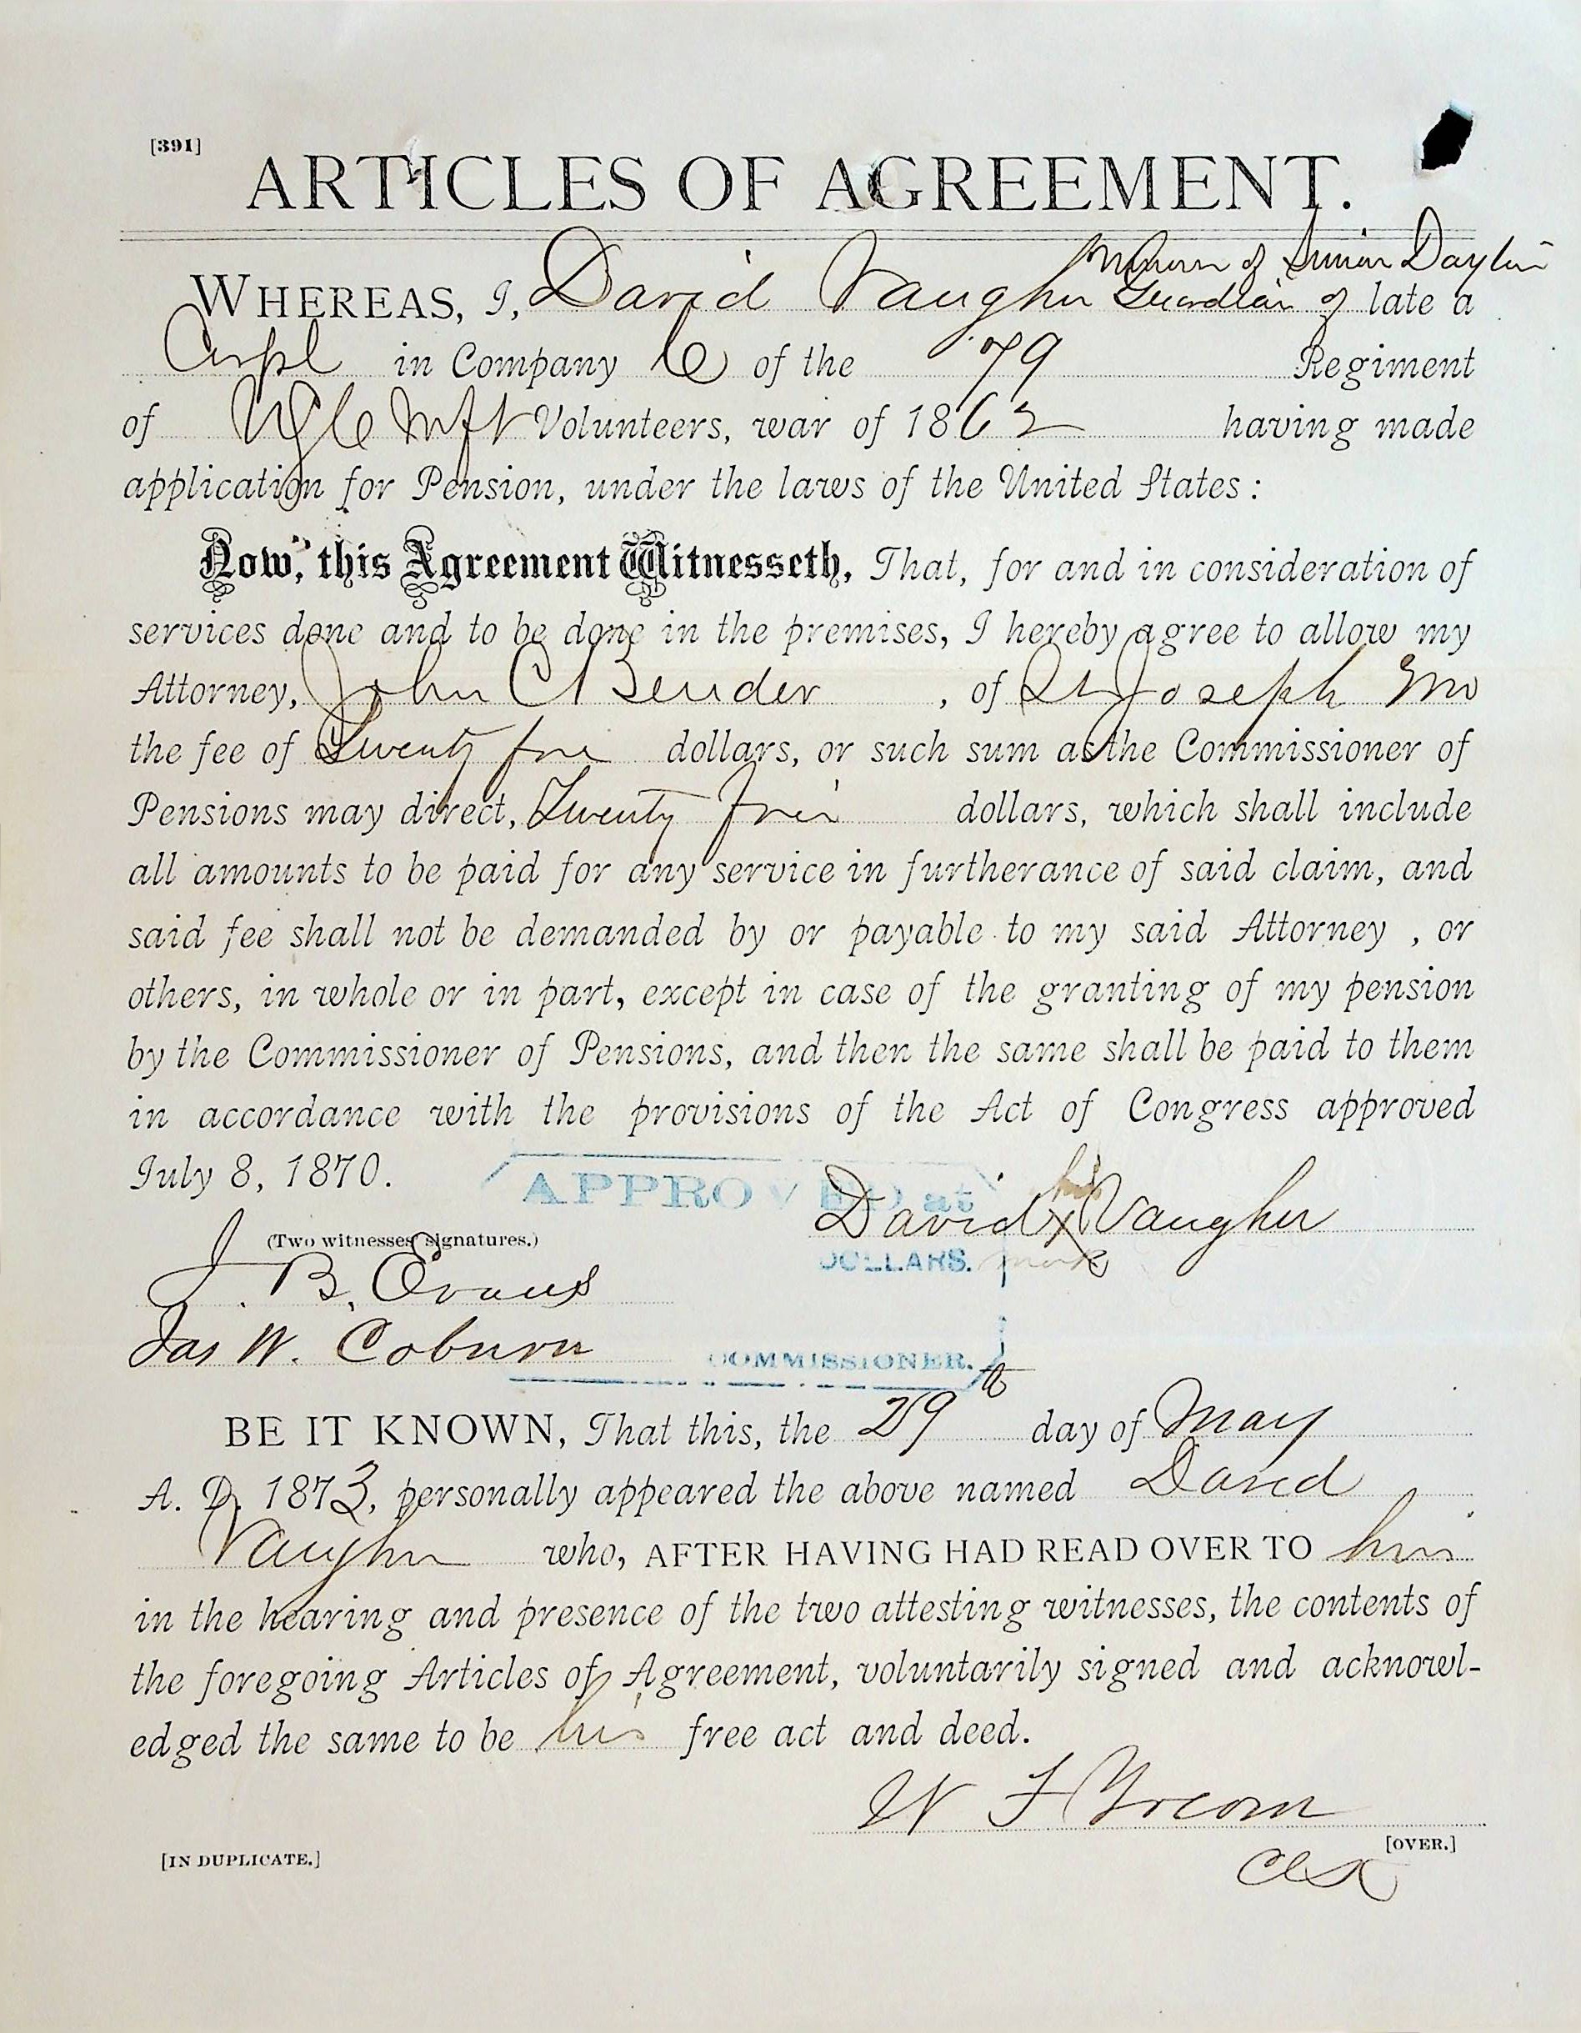 [391]
ARTICLES OF AGREEMENT.
Minors of Simon Daylin
WHEREAS, I, David Vaughn Guardian of late a
Corpl in Company C of the 79 Regiment
of Volunteers, war of 1862 having made
application for Pension, under the laws of the United States:
Now, this Agreement Witnesseth, That, for and in consideration of
services done and to be done in the premises, I hereby agree to allow my
Attorney, John C Bender, of St Joseph Mo
the fee of Twenty five dollars, or such sum as the Commissioner of
Pensions may direct, Twenty five dollars, which shall include
all amounts to be paid for any service in furtherance of said claim, and
said fee shall not be demanded by or payable to my said Attorney, or
others, in whole or in part, except in case of the granting of my pension
by the Commissioner of Pensions, and then the same shall be paid to them
in accordance with the provisions of the Act of Congress approved
July 8, 1870.
APPROVED at
his
David X Vaughn
mark
DOLLARS.
(Two witnesses signatures.)
J. B. Evans
Jas W. Coburn
COMMISSIONER.
BE IT KNOWN, That this, the 29th day of May
A. D. 1873, personally appeared the above named David
Vaughn who, AFTER HAVING HAD READ OVER TO him
in the hearing and presence of the two attesting witnesses, the contents of
the foregoing Articles of Agreement, voluntarily signed and acknowl-
edged the same to be his free act and deed.
W F Yocom
[IN DUPLICATE.]
[OVER.]
Clk